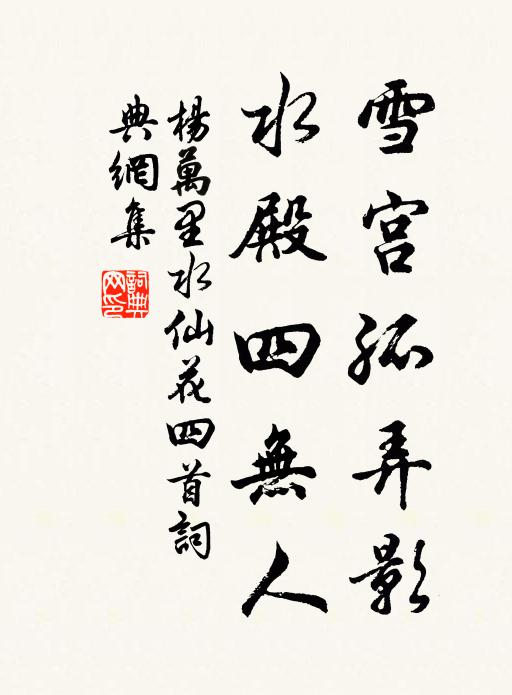 雪宫孤弄影
水殿四無人
楊萬里水仙花四首詞
典網集
詞典網印